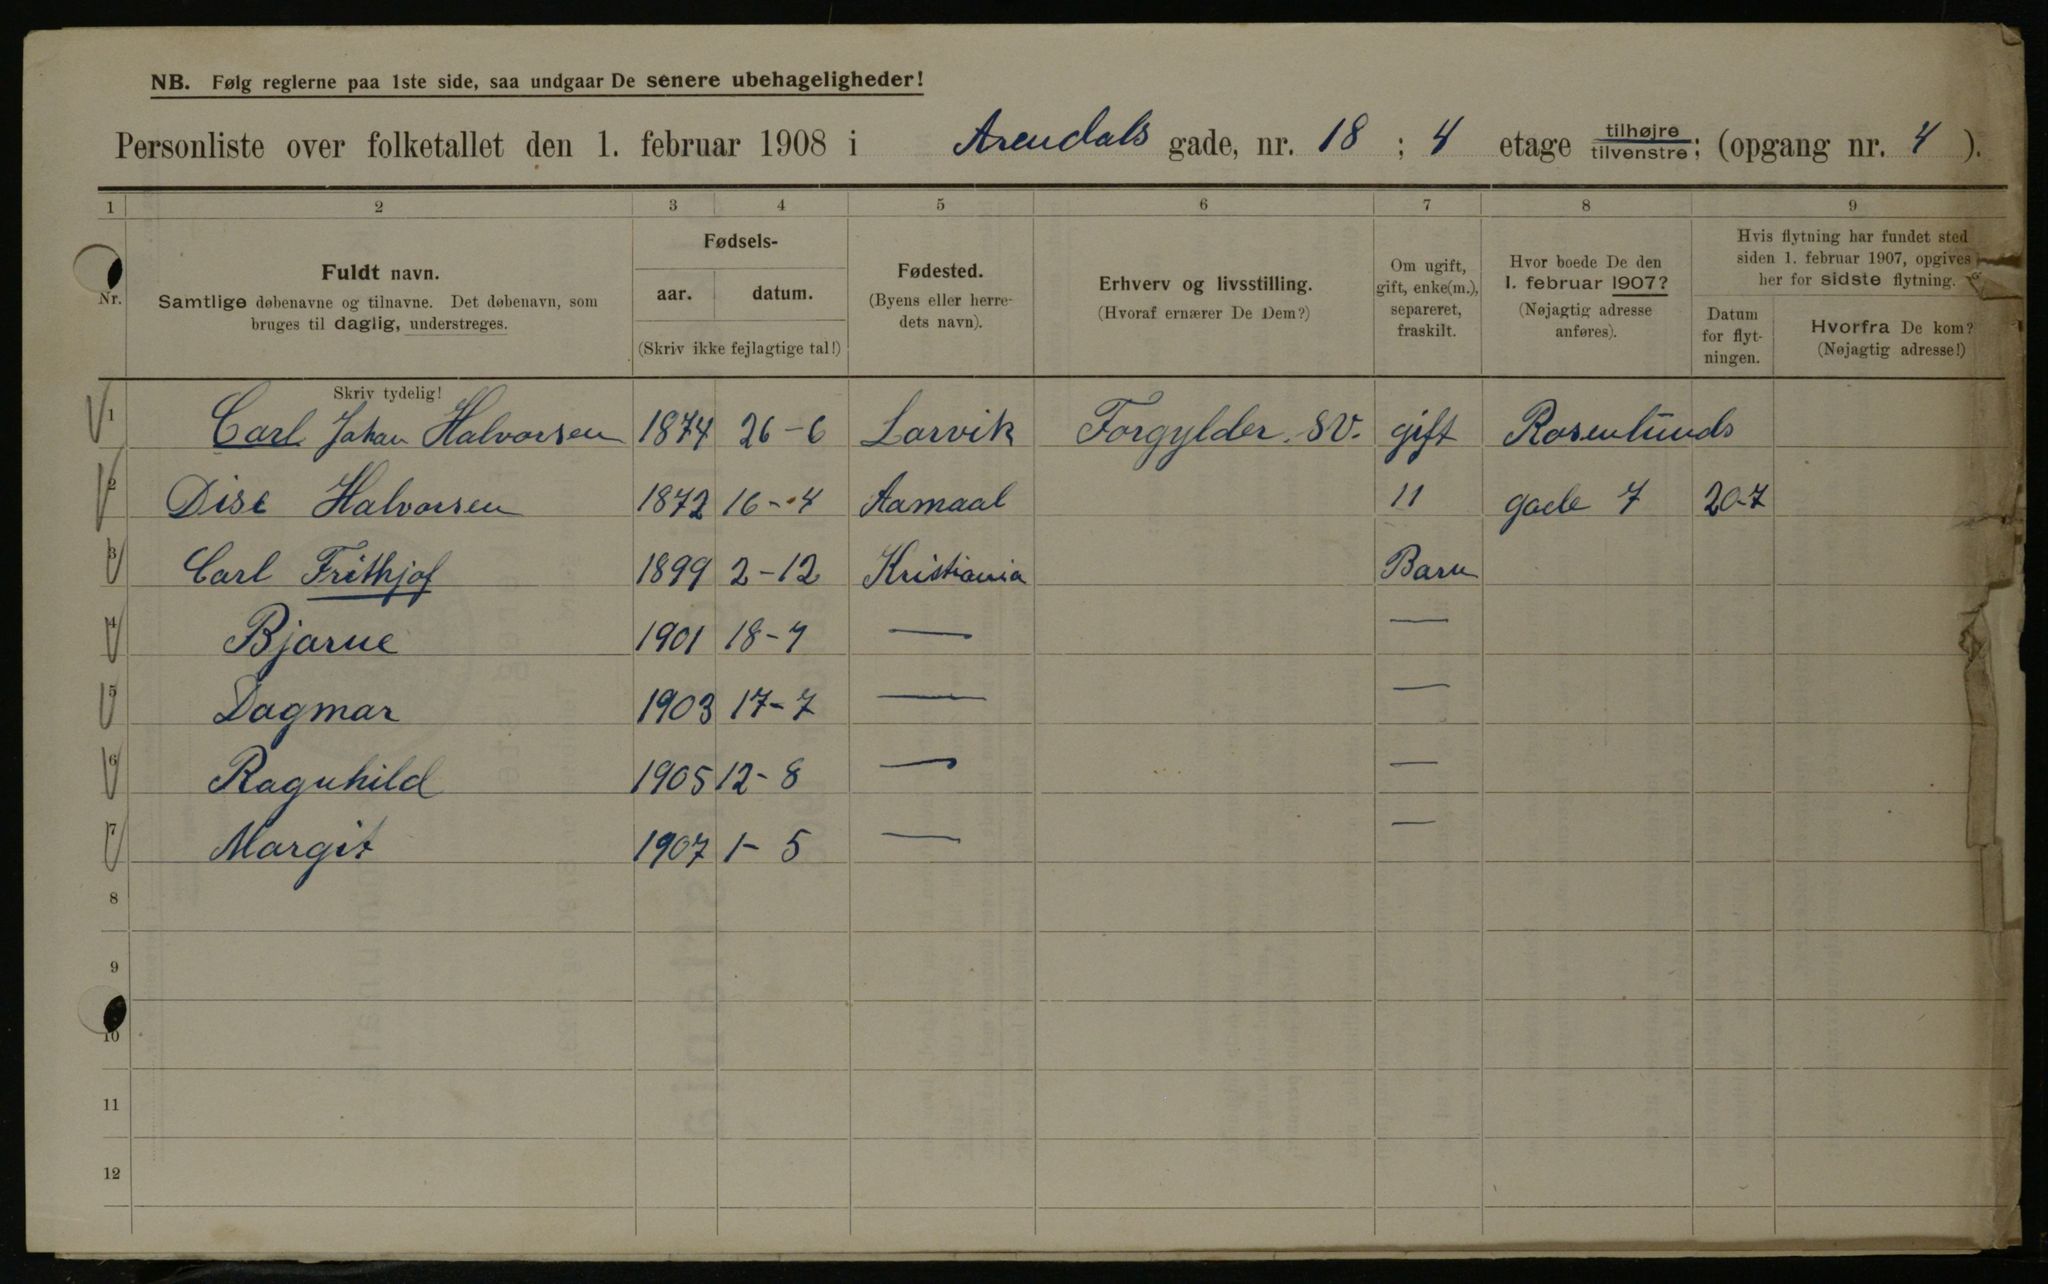 NB. Følg reglerne paa 1ste side, saa undgaar De senere ubehageligheder!
Personliste over folketallet den 1. februar 1908 i Arendals gade, nr. 18 ; 4 etage tilhøjre / tilvenstre; (opgang nr. 4 ).
1 2 3 4 5 6 7 8 9
Nr.
Fuldt navn.
Samtlige døbenavne og tilnavne. Det døbenavn, som
bruges til daglig, understreges.
Fødsels-
aar. datum.
(Skriv ikke fejlagtige tal!)
Fødested.
(Byens eller herre-
dets navn).
Erhverv og livsstilling.
(Hvoraf ernærer De Dem?)
Om ugift,
gift, enke(m.),
separeret,
fraskilt.
Hvor boede De den
1. februar 1907?
(Nøjagtig adresse
anføres).
Hvis flytning har fundet sted
siden 1. februar 1907, opgives
her for sidste flytning.
Datum
for flyt-
ningen.
Hvorfra De kom?
(Nøjagtig adresse!)
Skriv tydelig!
1 Carl Johan Halvorsen 1874 26-6 Larvik Forgylder. SV. gift Rosenlunds
2 Dise Halvorsen 1872 16-4 Aamaal 11 gade 7 20-7
3 Carl Frithjof 1899 2-12 Kristiania Barn
4 Bjarne 1901 18-7 — —
5 Dagmar 1903 17-7 — —
6 Ragnhild 1905 12-8 — —
7 Margit 1907 1-5 — —
8
9
10
11
12